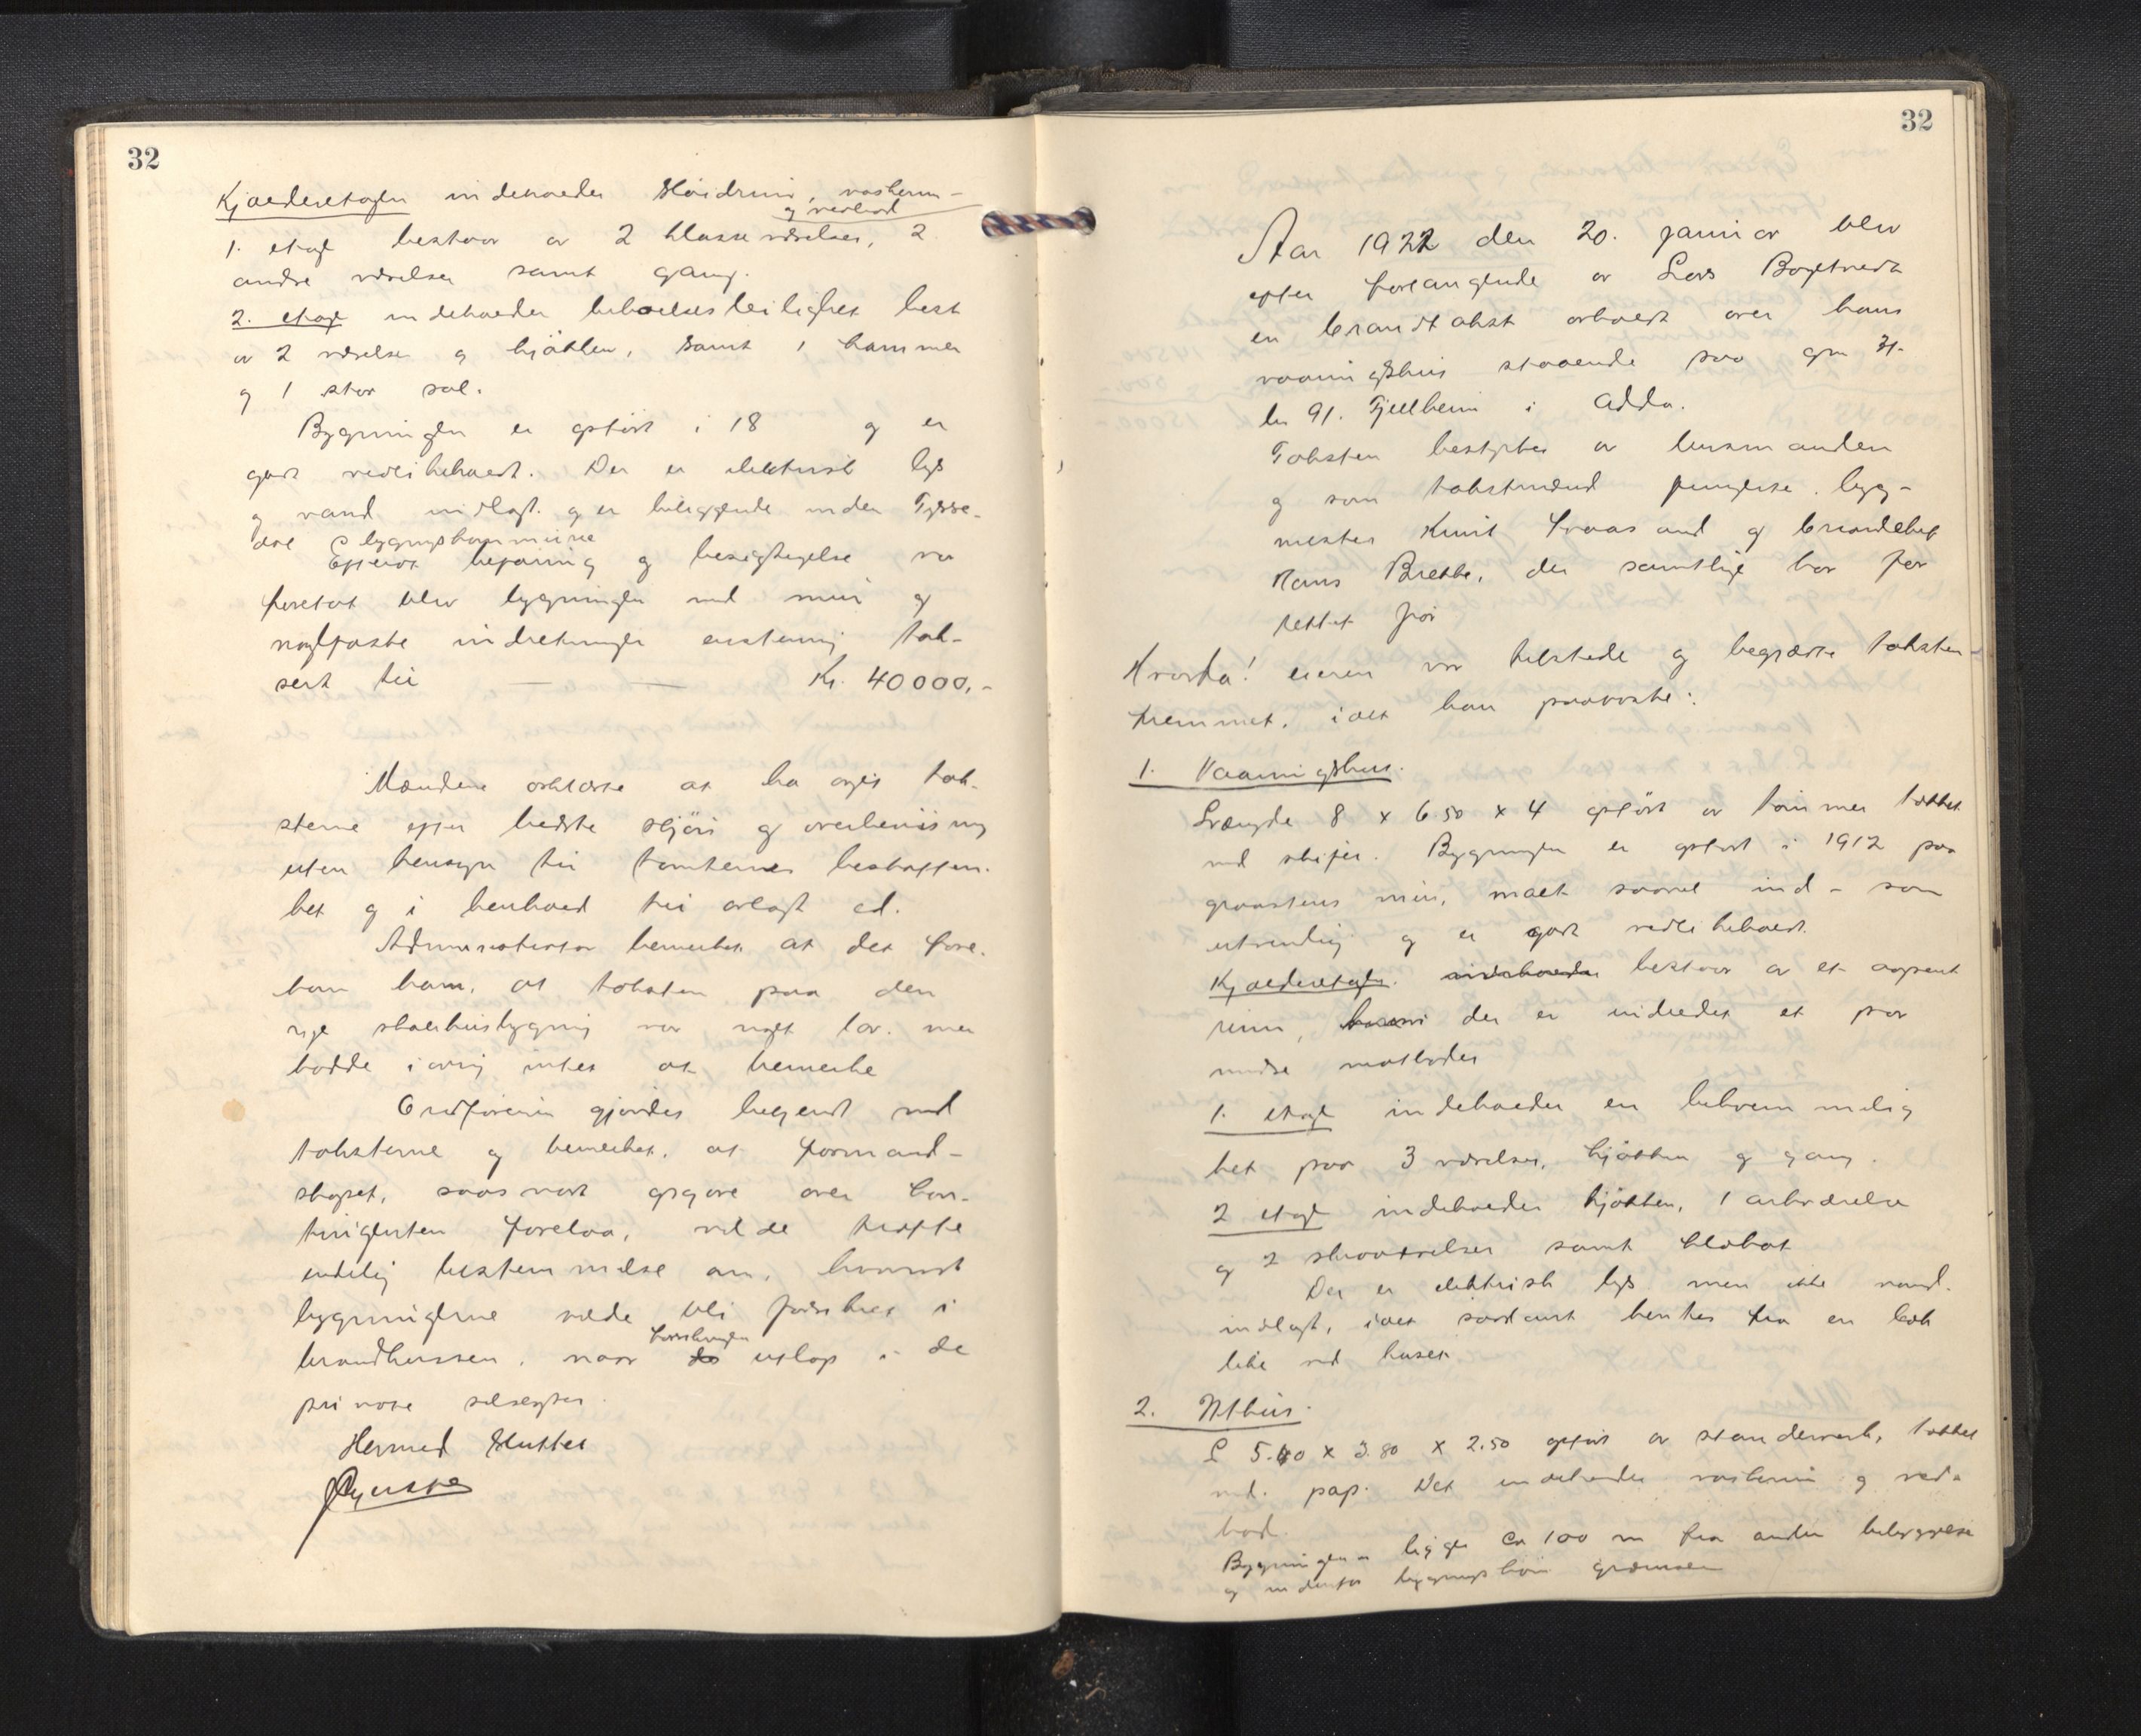 32
Kjælderetagen indeholder sløidrum, vaskerum
og vedbod
1. etage bestaar av 2 klasseværelser, 2
andre værelser samt gang.
2. etage indeholder beboelsesleilighet best
av 2 værelser og kjøkken, samt 1 kammer
og 1 stor sal.
Bygningen er opført i 18 og er
godt vedlikeholdt. Der er elektrisk lys
og vand indlagt og er beliggende inden Tysse-
dal bygningskommune
Efterat befaring og besigtigelse var
foretat blev bygningen med mur og
naglfaste indretninger enstemig tak-
sert til — — Kr. 40000,-
Mændene erklærte at ha avgit tak-
sterne efter bedste skjøn og overbevisning
uten hensyn til tomternes beskaffen-
het og i henhold til avlagt ed.
Administrator bemerket at det fore-
kom ham, at taksten paa den
nye skolehusbygning var noget lav. men
hadde iøvrig intet at bemerke
Ordføreren gjordes bekjendt med
taksterne og bemerket, at formand-
skapet, saasnart opgave over kon-
tingenten forelaa, vilde træffe
endelig bestemmelse om, hvorvidt
bygningerne vilde bli forsikret i
brandkassen, naar forsikringen utløp i de
private selskaper.
Hermed Sluttet
32
Aar 1922 den 20. januar blev
efter forlangende av Lars Bogetvedt
en brandtakst avholdt over hans
vaaningshus staaende paa gn 31.
bn 91. Fjellheim i Odda.
Taksten bestyrtes av lensmanden
og som takstmænd fungerte bygg-
mester Knut Fraas and og branddebef
Hans Brekke, der samtlige har for
rettet før
Hvorda! eieren var tilstede og begjærte taksten
fremmet, idet han paaviste:
1. Vaaningshus.
Længde 8 x 6.50 x 4 opført av tømmer tækket
med skifer. Bygningen er opført i 1912 paa
graastens mur, malt saavel ind- som
utvendig og er godt vedlikeholdt.
Kjælderetagen. indeholder bestaar av et aapent
rum, hvori der er indredet et par
mindre matboder
1. etage indeholder en bekvemmelig
het paa 3 værelser, kjøkken og gang.
2 etage indeholder kjøkken, 1 arb.værelse
og 2 smaaværelser samt klosat
Der er elektrisk lys men ikke vand
indlagt, idet saadant hentes fra en bæk
like ved huset
2. Uthus.
L 5.40 x 3.80 x 2.50 opført av stenderverk, tækket
med pap. Det indeholder vaskerum og ved-
bod.
Bygningen ligger ca 100 m fra anden bebyggelse
og indenfor bygningskom grænsen